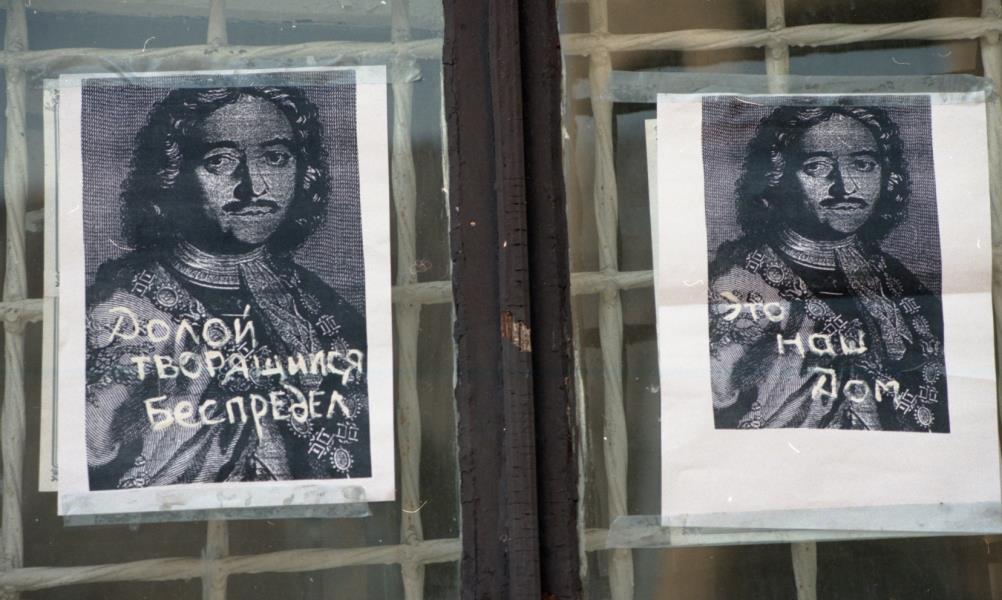 Долой
творящился
Беспредел
Это
наш
Дом